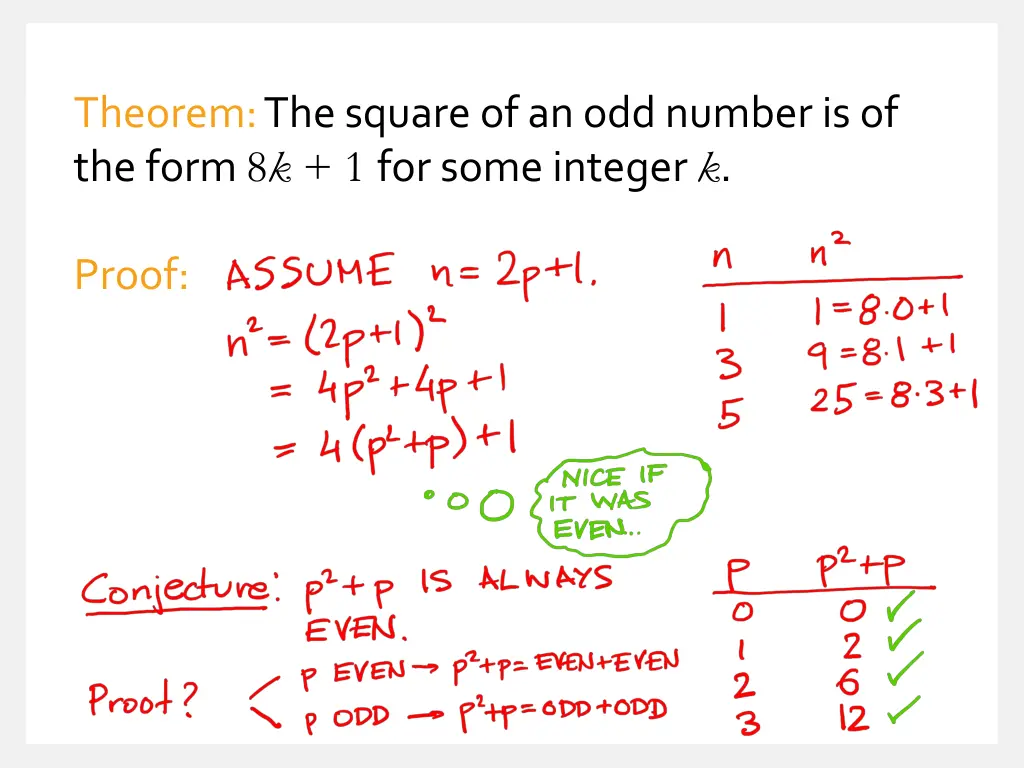 Theorem: The square of an odd number is of
the form 8k + 1 for some integer k.
Proof: ASSUME n = 2p+1.
n² = (2p+1)²
= 4p² + 4p + 1
= 4(p²+p) + 1
n n²
1 1 = 8·0+1
3 9 = 8·1 +1
5 25 = 8·3+1
NICE IF
IT WAS
EVEN..
Conjecture: p²+p IS ALWAYS
EVEN.
Proof? p EVEN → p²+p = EVEN+EVEN
p ODD → p²+p = ODD+ODD
p p²+p
0 0 ✓
1 2 ✓
2 6 ✓
3 12 ✓